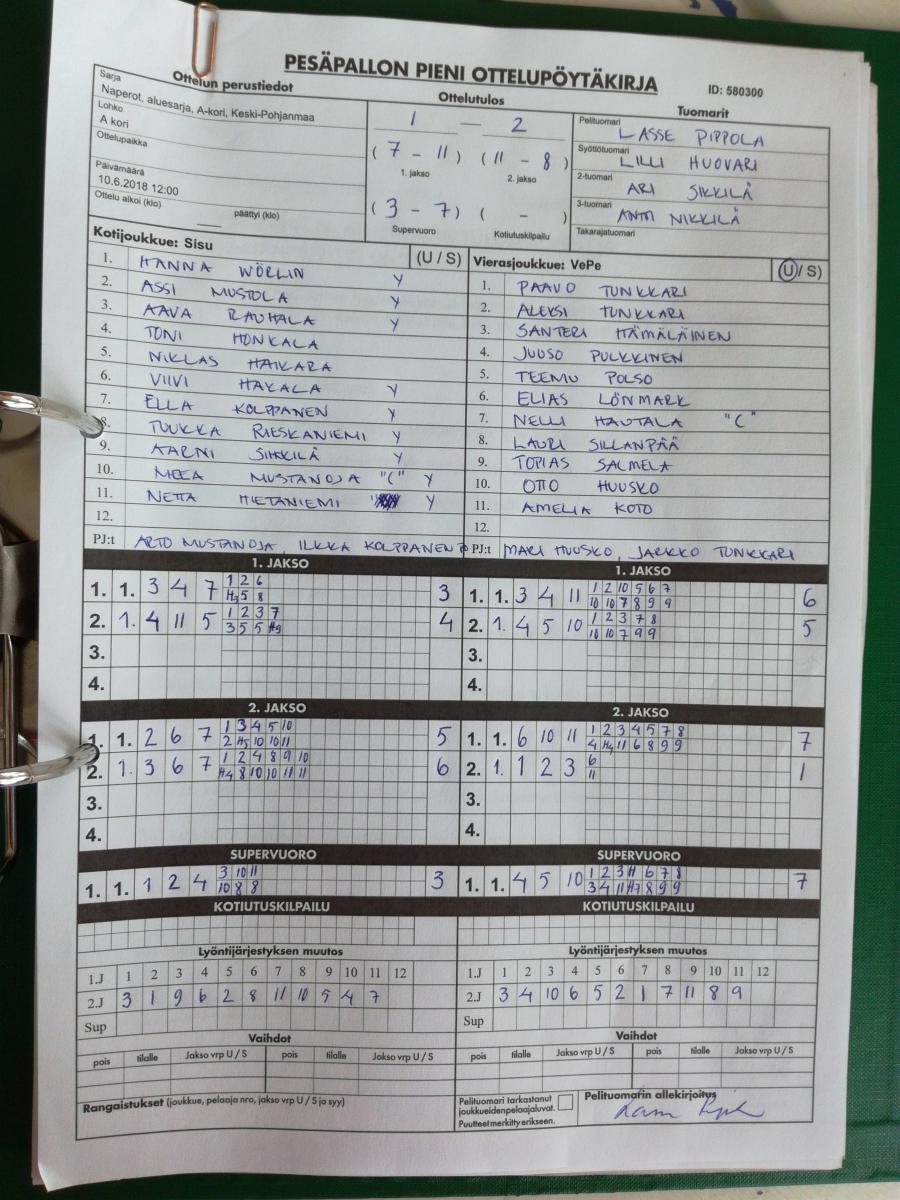 PESÄPALLON PIENI OTTELUPÖYTÄKIRJA
ID: 580300
Ottelun perustiedot
Sarja
Naperot, aluesarja, A-kori, Keski-Pohjanmaa
Lohko
A kori
Ottelupaikka
Päivämäärä
10.6.2018 12:00
Ottelu alkoi (klo) päättyi (klo)
Ottelutulos
1 — 2
(7 - 11) (11 - 8)
1. jakso 2. jakso
(3 - 7) ( - )
Supervuoro Kotiutuskilpailu
Tuomarit
Pelituomari LASSE PIPPOLA
Syöttötuomari LILLI HUOVARI
2-tuomari ARI SIKKILÄ
3-tuomari ANTTI NIKKILÄ
Takarajatuomari
Kotijoukkue: Sisu (U / S)
1. HANNA WÖRLIN Y
2. ASSI MUSTOLA Y
3. AAVA RAUHALA Y
4. TONI HONKALA
5. NIKLAS HAIKARA
6. VIIVI HAKALA Y
7. ELLA KOLPPANEN Y
8. TUUKKA RIESKANIEMI Y
9. AARNI SIKKILÄ Y
10. MEEA MUSTANOJA "C" Y
11. NETTA HIETANIEMI Y
12.
PJ:t ARTO MUSTANOJA, ILKKA KOLPPANEN
Vierasjoukkue: VePe (U / S)
1. PAAVO TUNKKARI
2. ALEKSI TUNKKARI
3. SANTERI HÄMÄLÄINEN
4. JUUSO PULKKINEN
5. TEEMU POLSO
6. ELIAS LÖNMARK
7. NELLI HAUTALA "C"
8. LAURI SILLANPÄÄ
9. TOPIAS SALMELA
10. OTTO HUUSKO
11. AMELIA KOTO
12.
PJ:t MARI HUUSKO, JARKKO TUNKKARI
1. JAKSO
1. 1. 3 4 7 1 2 6 3
H5 5 8
2. 1. 4 11 5 1 2 3 7 4
3 5 5 H9
3.
4.
1. JAKSO
1. 1. 3 4 11 1 2 10 5 6 7 6
10 10 7 8 9 9
2. 1. 4 5 10 1 2 3 7 8 5
10 10 7 9 9
3.
4.
2. JAKSO
1. 1. 2 6 7 1 3 4 5 10 5
2 H5 10 10 11
2. 1. 3 6 7 1 2 4 8 9 10 6
H4 8 10 10 11 11
3.
4.
2. JAKSO
1. 1. 6 10 11 1 2 3 4 5 7 8 7
4 H4 11 6 8 9 9
2. 1. 1 2 3 6 1
11
3.
4.
SUPERVUORO
1. 1. 1 2 4 3 10 11 3
10 8 8
SUPERVUORO
1. 1. 4 5 10 1 2 3 H 6 7 8 7
3 4 11 H7 8 9 9
KOTIUTUSKILPAILU
KOTIUTUSKILPAILU
Lyöntijärjestyksen muutos
1.J 1 2 3 4 5 6 7 8 9 10 11 12
2.J 3 1 9 6 2 8 11 10 5 4 7
Sup
Lyöntijärjestyksen muutos
1.J 1 2 3 4 5 6 7 8 9 10 11 12
2.J 3 4 10 6 5 2 1 7 11 8 9
Sup
Vaihdot
pois tilalle Jakso vrp U / S pois tilalle Jakso vrp U / S
Vaihdot
pois tilalle Jakso vrp U / S pois tilalle Jakso vrp U / S
Rangaistukset (joukkue, pelaaja nro, jakso vrp U / S ja syy)
Pelituomari tarkastanut
joukkueidenpelaajaluvat.
Puutteetmerkittyerikseen.
Pelituomarin allekirjoitus